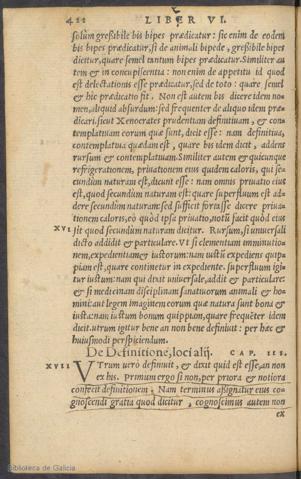 422 LIBER VI.
solùm greßibile bis bipes prædicatur: sic enim de eodem
bis bipes prædicatur, si de animali bipede, greßibile bipes
dicitur, quare semel tantum bipes prædicatur. Similiter au
tem & in concupiscentia: non enim de appetitu id quod
est delectationis esse prædicatur, sed de toto: quare semel
& hic prædicatio fit. Non est autem bis dicere idem no-
men, aliquid absurdum: sed frequenter de aliquo idem præ-
dicari. sicut Xenocrates prudentiam definitiuam, & con-
templatiuam eorum quæ sunt, dicit esse: nam definitiua,
contemplatiua quædam est, quare bis idem dicit, addens
rursum & contemplatiuam. Similiter autem & quicunque
refrigerationem, priuationem eius quidem caloris, qui se-
cundùm naturam est, dicunt esse: nam omnis priuatio eius
est, quod secundùm naturam est: quare superfluum est ad-
dere secundùm naturam: sed sufficit forsasse dicere priua-
tionem caloris, eò quòd ipsa priuatio, notū facit quòd eius
XVI sit quod secundùm naturam dicitur. Rursum, si uniuersali
dicto addidit & particulare. Vt si clementiam imminutio-
nem, expedientiam & iustorum: nam iustū expediens quip-
piam est, quare continetur in expediente. superfluum igi-
tur iustum: nam qui dixit uniuersale, addit & particulare:
& si medicinam disciplinam sanatiuorum animali & ho-
mini: aut legem imaginem eorum quæ natura sunt bona &
iusta: nam iustum bonum quippiam, quare frequēter idem
dicit. utrum igitur bene an non bene definiuit: per hæc &
huiusmodi perspiciendum.
De Definitione, loci alij. CAP. III.
XVII VTrum uerò definiuit, & dixit quid est esse, an non
ex his. Primum ergo si non per priora & notiora
confecit definitionem. Nam terminus aßignatur eius co-
gnoscendi gratia quod dicitur, cognoscimus autem non
ex
Biblioteca de Galicia